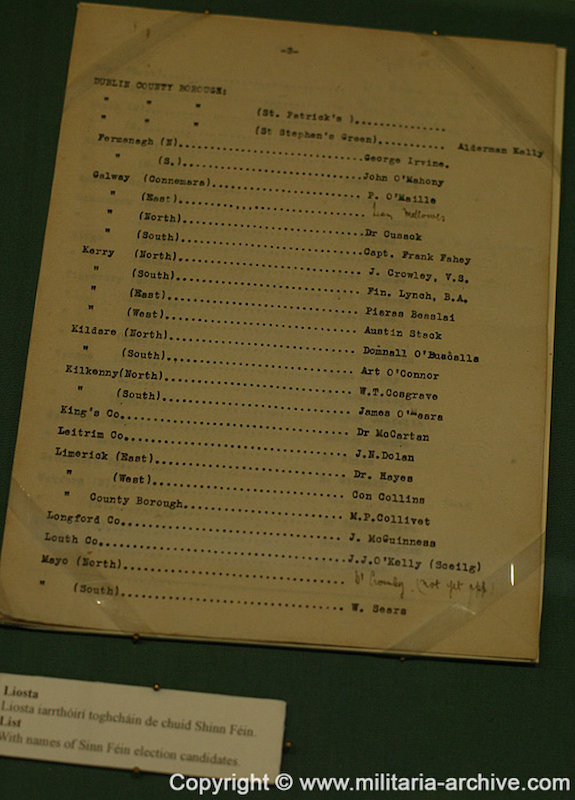 -3-
DUBLIN COUNTY BOROUGH:
" " " (St. Patrick's )..............
" " " (St Stephen's Green)........... Alderman Kelly
Fermanagh (N)..............................George Irvine.
" (S.)..............................John O'Mahony
Galway (Connemara)......................... P. O'Maille
" (East)........................... Liam Mellowes
" (North)...........................Dr Cusack
" (South)...........................Capt. Frank Fahey
Kerry (North)........................... J. Crowley, V.S.
" (South)........................... Fin. Lynch, B.A.
" (East)........................... Piaras Beaslai
" (West)........................... Austin Stack
Kildare (North)........................... Domnall O'Buċalla
" (South)........................... Art O'Connor
Kilkenny(North)........................... W.T.Cosgrave
" (South)........................... James O'Meara
King's Co................................. Dr McCartan
Leitrim Co................................ J.N.Dolan
Limerick (East)........................... Dr. Hayes
" (West)........................... Con Collins
" County Borough...................... M.P.Collivet
Longford Co............................... J. McGuinness
Louth Co..................................J.J.O'Kelly (Sceilg)
Mayo (North).............................. Dr Crowley. (not yet app)
" (South).............................. W. Sears
Liosta
Liosta iarrthóirí toghcháin de chuid Shinn Féin.
List
With names of Sinn Féin election candidates.
Copyright © www.militaria-archive.com